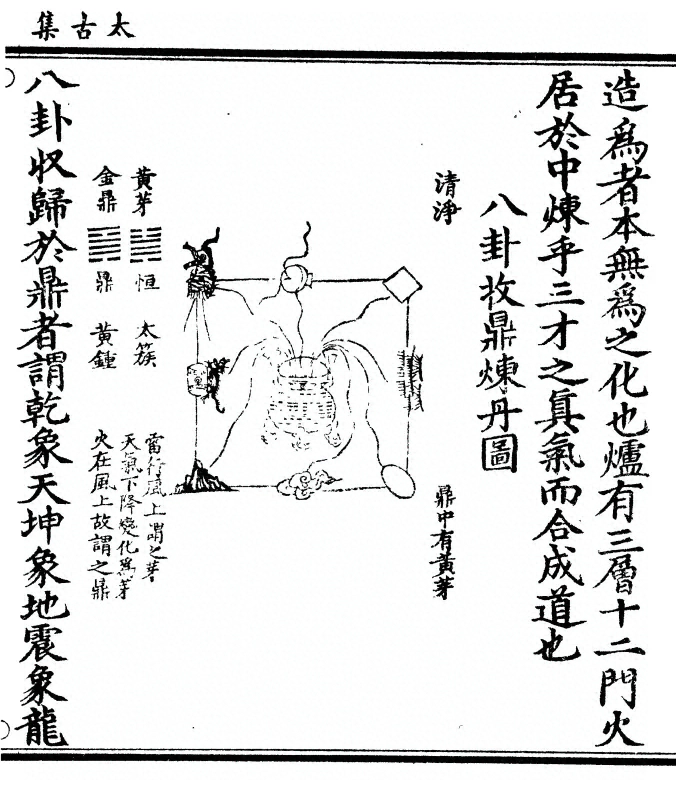 太古集
造爲者本無爲之化也爐有三層十二門火
居於中煉乎三才之眞氣而合成道也
八卦收鼎煉丹圖
清淨
鼎中有黃芽
黃芽 ䷟ 恒 太簇
雷行風上謂之芽
天氣下降變化爲芽
金鼎 ䷱ 鼎 黃鍾
火在風上故謂之鼎
八卦収歸於鼎者謂乾象天坤象地震象龍